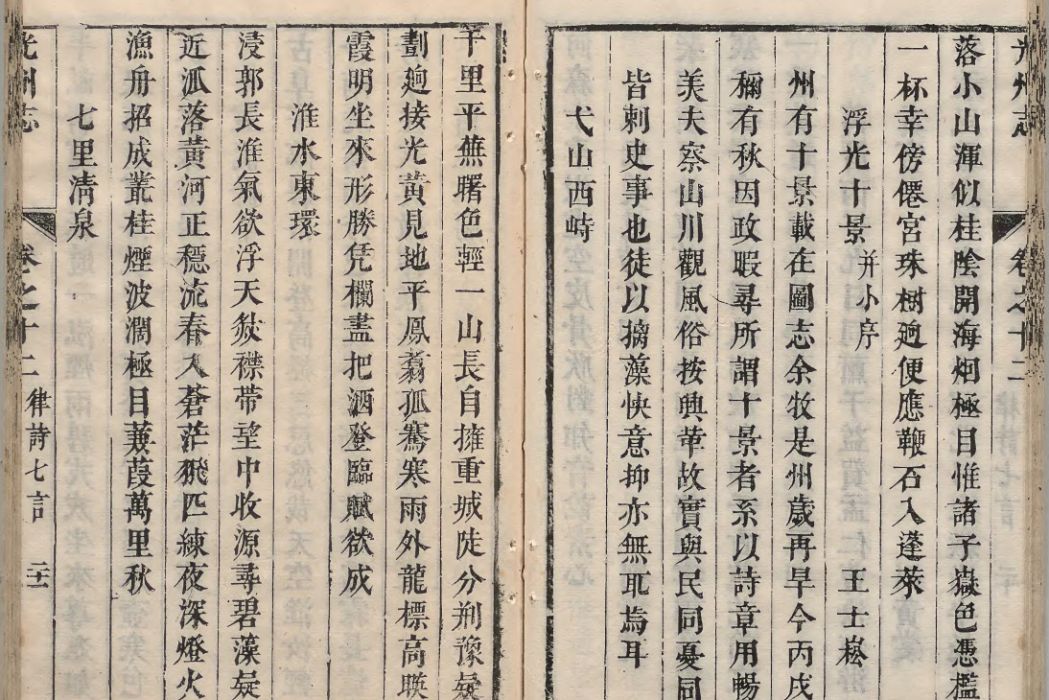 光州志 卷之十二
落小山渾似桂陰開海烟極目惟諸子嶽色憑檻
一杯幸傍僊宮珠樹廻便應鞭石入蓬萊
浮光十景并小序 王士崧
州有十景載在圖志余牧是州歲再旱今丙戌
穪有秋因政暇尋所謂十景者系以詩章用暢
美夫察山川觀風俗按興革故實與民同憂同
皆刺史事也徒以摛藻快意抑亦無耻焉耳
弋山西峙
千里平蕪曙色輕一山長自擁重城陡分荆豫凝
劃廻接光黃見地平鳳翥孤騫寒雨外龍標高映
霞明坐來形勝凭欄盡把酒登臨賦欲成
淮水東環
浸郭長淮氣欲浮天然襟帶望中收源尋碧藻凝
近派落黃河正穩流春入蒼茫飛匹練夜深燈火
漁舟招成叢桂煙波濶極目蒹葭萬里秋
七里清泉
光州志 卷之十二 律詩七言 二十一